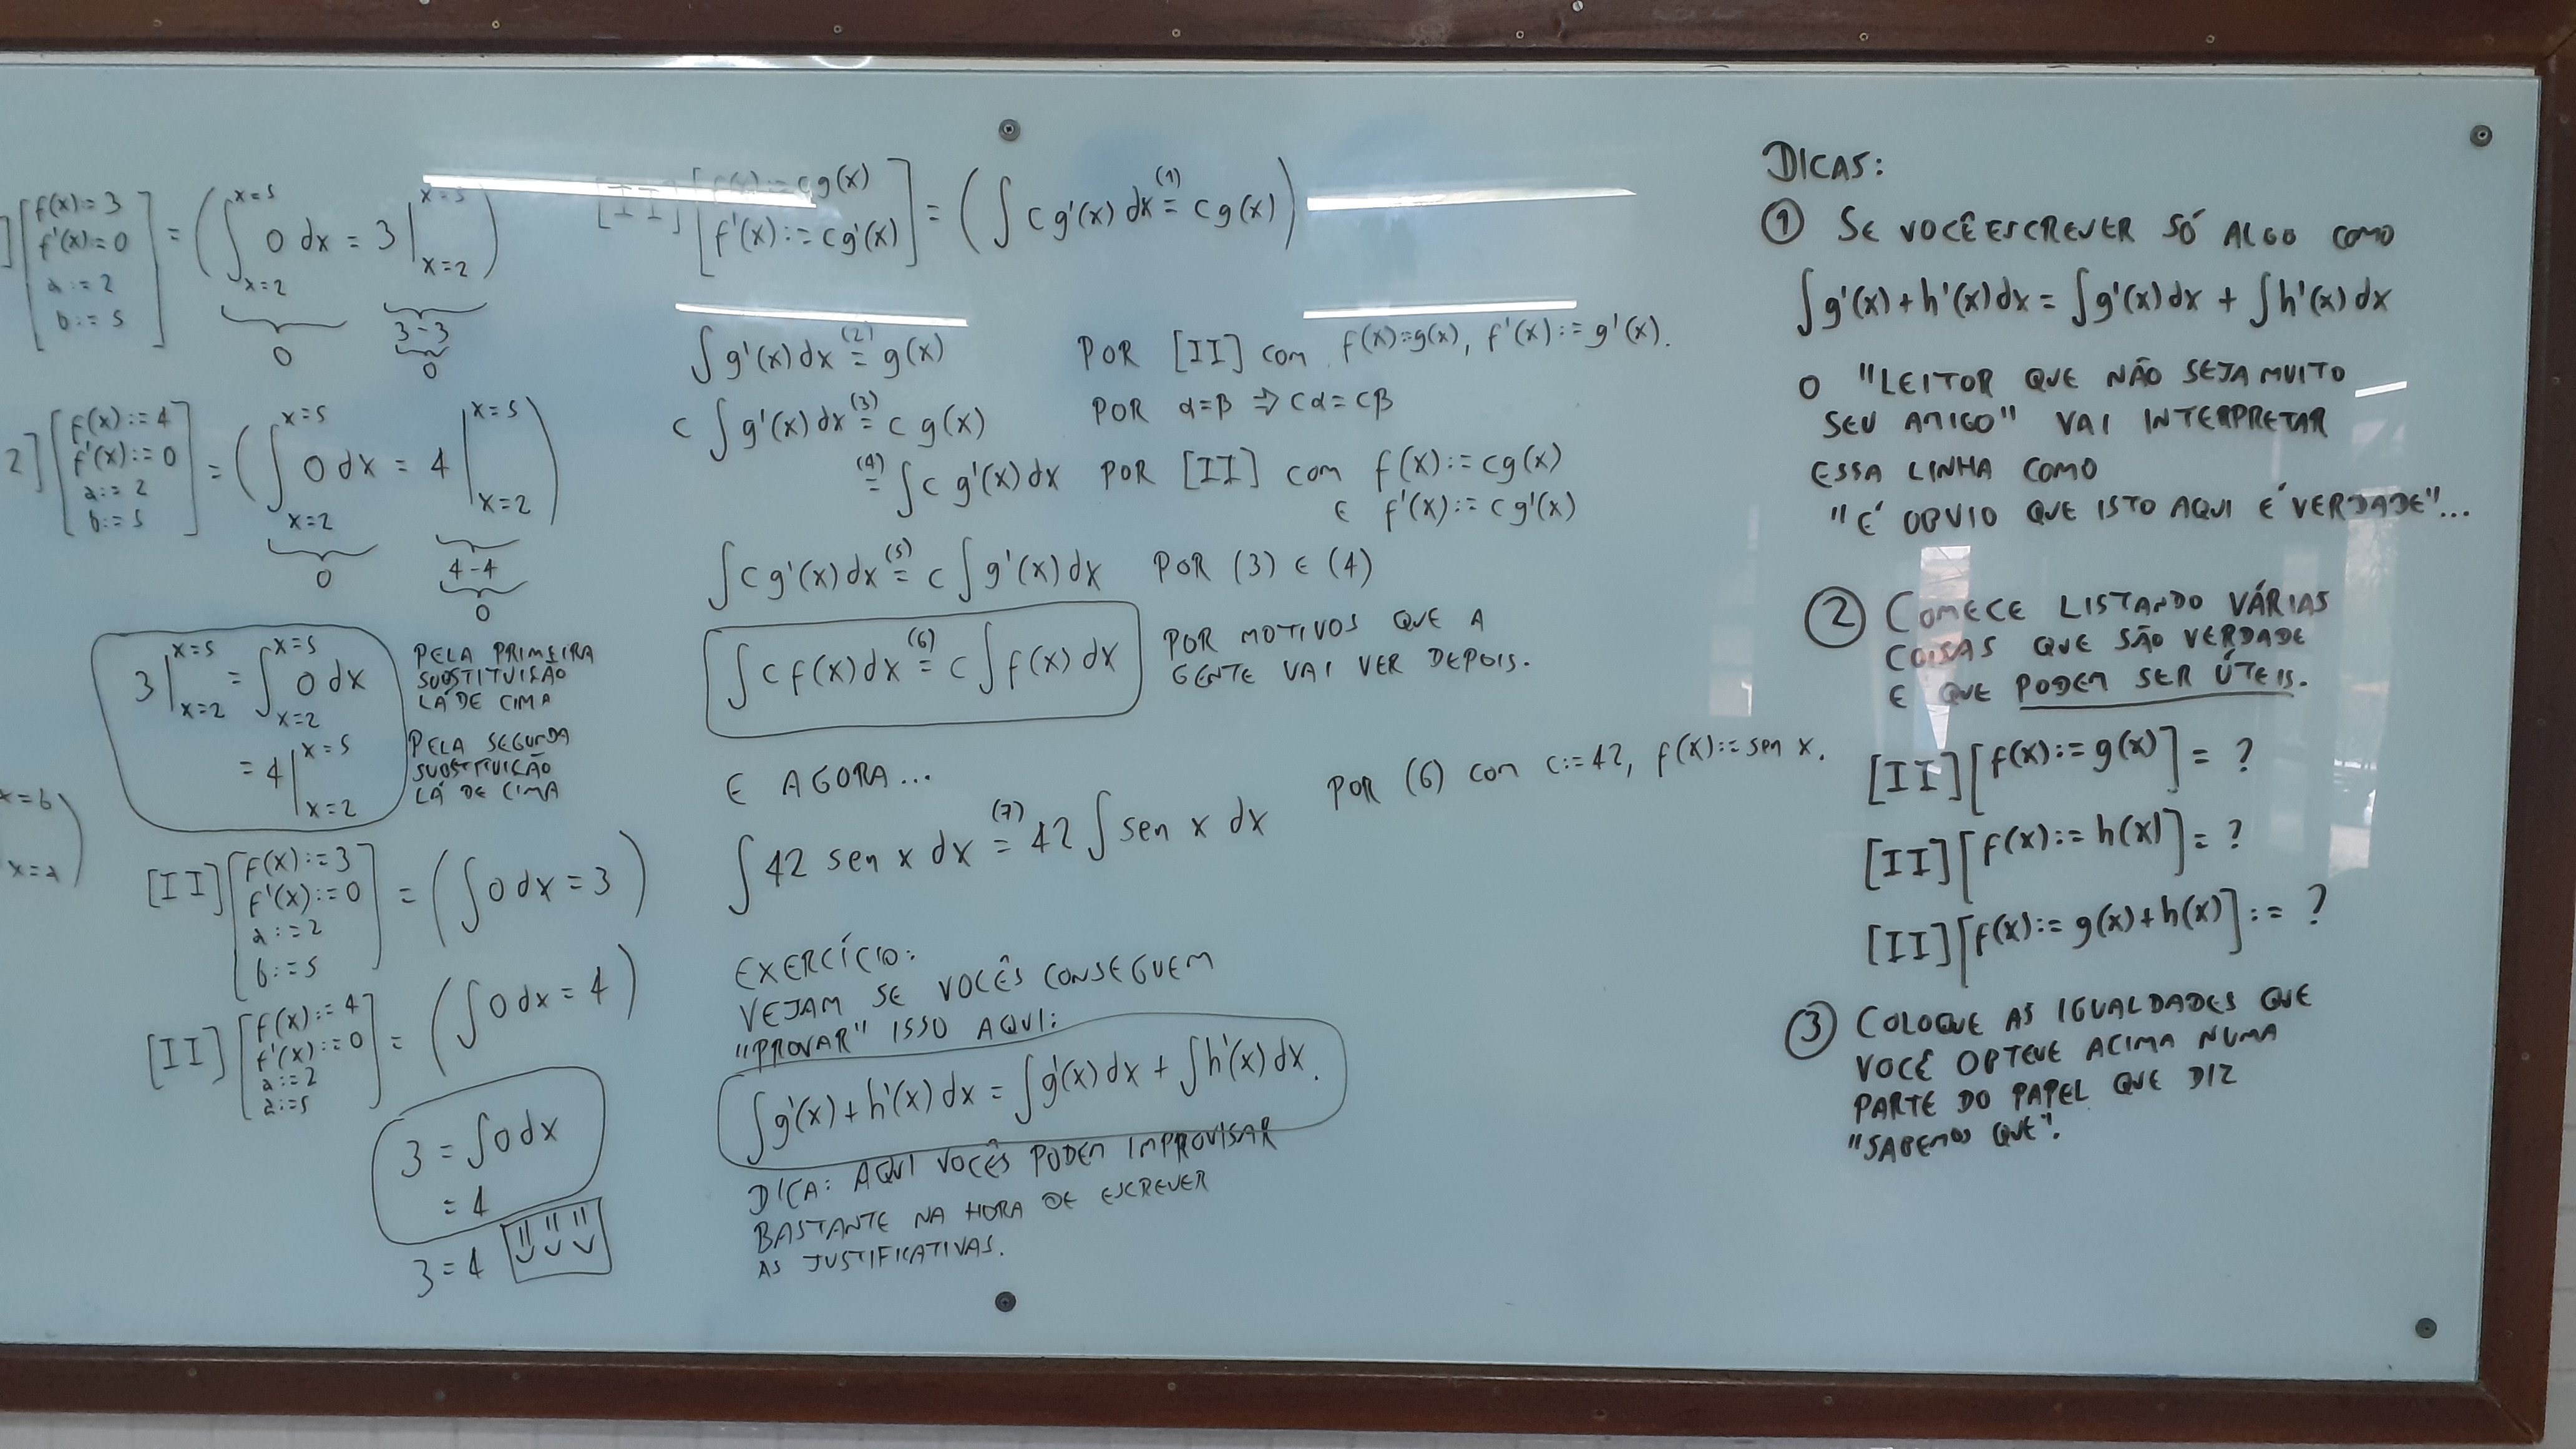 ][f(x):=3
f'(x):=0
a:=2
b:=5] = (∫_{x=2}^{x=5} 0 dx = 3 |_{x=2}^{x=5})
0
3-3
0
2][f(x):=4
f'(x):=0
a:=2
b:=5] = (∫_{x=2}^{x=5} 0 dx = 4 |_{x=2}^{x=5})
0
4-4
0
3 |_{x=2}^{x=5} = ∫_{x=2}^{x=5} 0 dx
PELA PRIMEIRA
SUBSTITUIÇÃO
LÁ DE CIMA
= 4 |_{x=2}^{x=5}
PELA SEGUNDA
SUBSTITUIÇÃO
LÁ DE CIMA
x=b
x=a )
[II][f(x):=3
f'(x):=0
a:=2
b:=5] = (∫ 0 dx = 3)
[II][f(x):=4
f'(x):=0
a:=2
a:=5] = (∫ 0 dx = 4)
3 = ∫ 0 dx
= 4
3 = 4 !! !! !!
[II][f(x):=cg(x)
f'(x):=cg'(x)] = (∫ c g'(x) dx (1)= c g(x))
∫ g'(x) dx (2)= g(x) POR [II] COM f(x):=g(x), f'(x):=g'(x).
c ∫ g'(x) dx (3)= c g(x) POR α=β ⇒ cα=cβ
(4)= ∫ c g'(x) dx POR [II] COM f(x):=cg(x)
E f'(x):=cg'(x)
∫ c g'(x) dx (5)= c ∫ g'(x) dx POR (3) E (4)
∫ c f(x) dx (6)= c ∫ f(x) dx
POR MOTIVOS QUE A
GENTE VAI VER DEPOIS.
E AGORA...
∫ 42 sen x dx (7)= 42 ∫ sen x dx POR (6) COM c:=42, f(x):=sen x.
EXERCÍCIO:
VEJAM SE VOCÊS CONSEGUEM
"PROVAR" ISSO AQUI:
∫ g'(x) + h'(x) dx = ∫ g'(x) dx + ∫ h'(x) dx.
DICA: AQUI VOCÊS PODEM IMPROVISAR
BASTANTE NA HORA DE ESCREVER
AS JUSTIFICATIVAS.
DICAS:
① SE VOCÊ ESCREVER SÓ ALGO COMO
∫ g'(x) + h'(x) dx = ∫ g'(x) dx + ∫ h'(x) dx
O "LEITOR QUE NÃO SEJA MUITO
SEU AMIGO" VAI INTERPRETAR
ESSA LINHA COMO
"É OBVIO QUE ISTO AQUI É VERDADE"...
② COMECE LISTANDO VÁRIAS
COISAS QUE SÃO VERDADE
E QUE PODEM SER ÚTEIS.
[II][f(x):=g(x)] = ?
[II][f(x):=h(x)] = ?
[II][f(x):=g(x)+h(x)] := ?
③ COLOQUE AS IGUALDADES QUE
VOCÊ OBTEVE ACIMA NUMA
PARTE DO PAPEL QUE DIZ
"SABEMOS QUE".